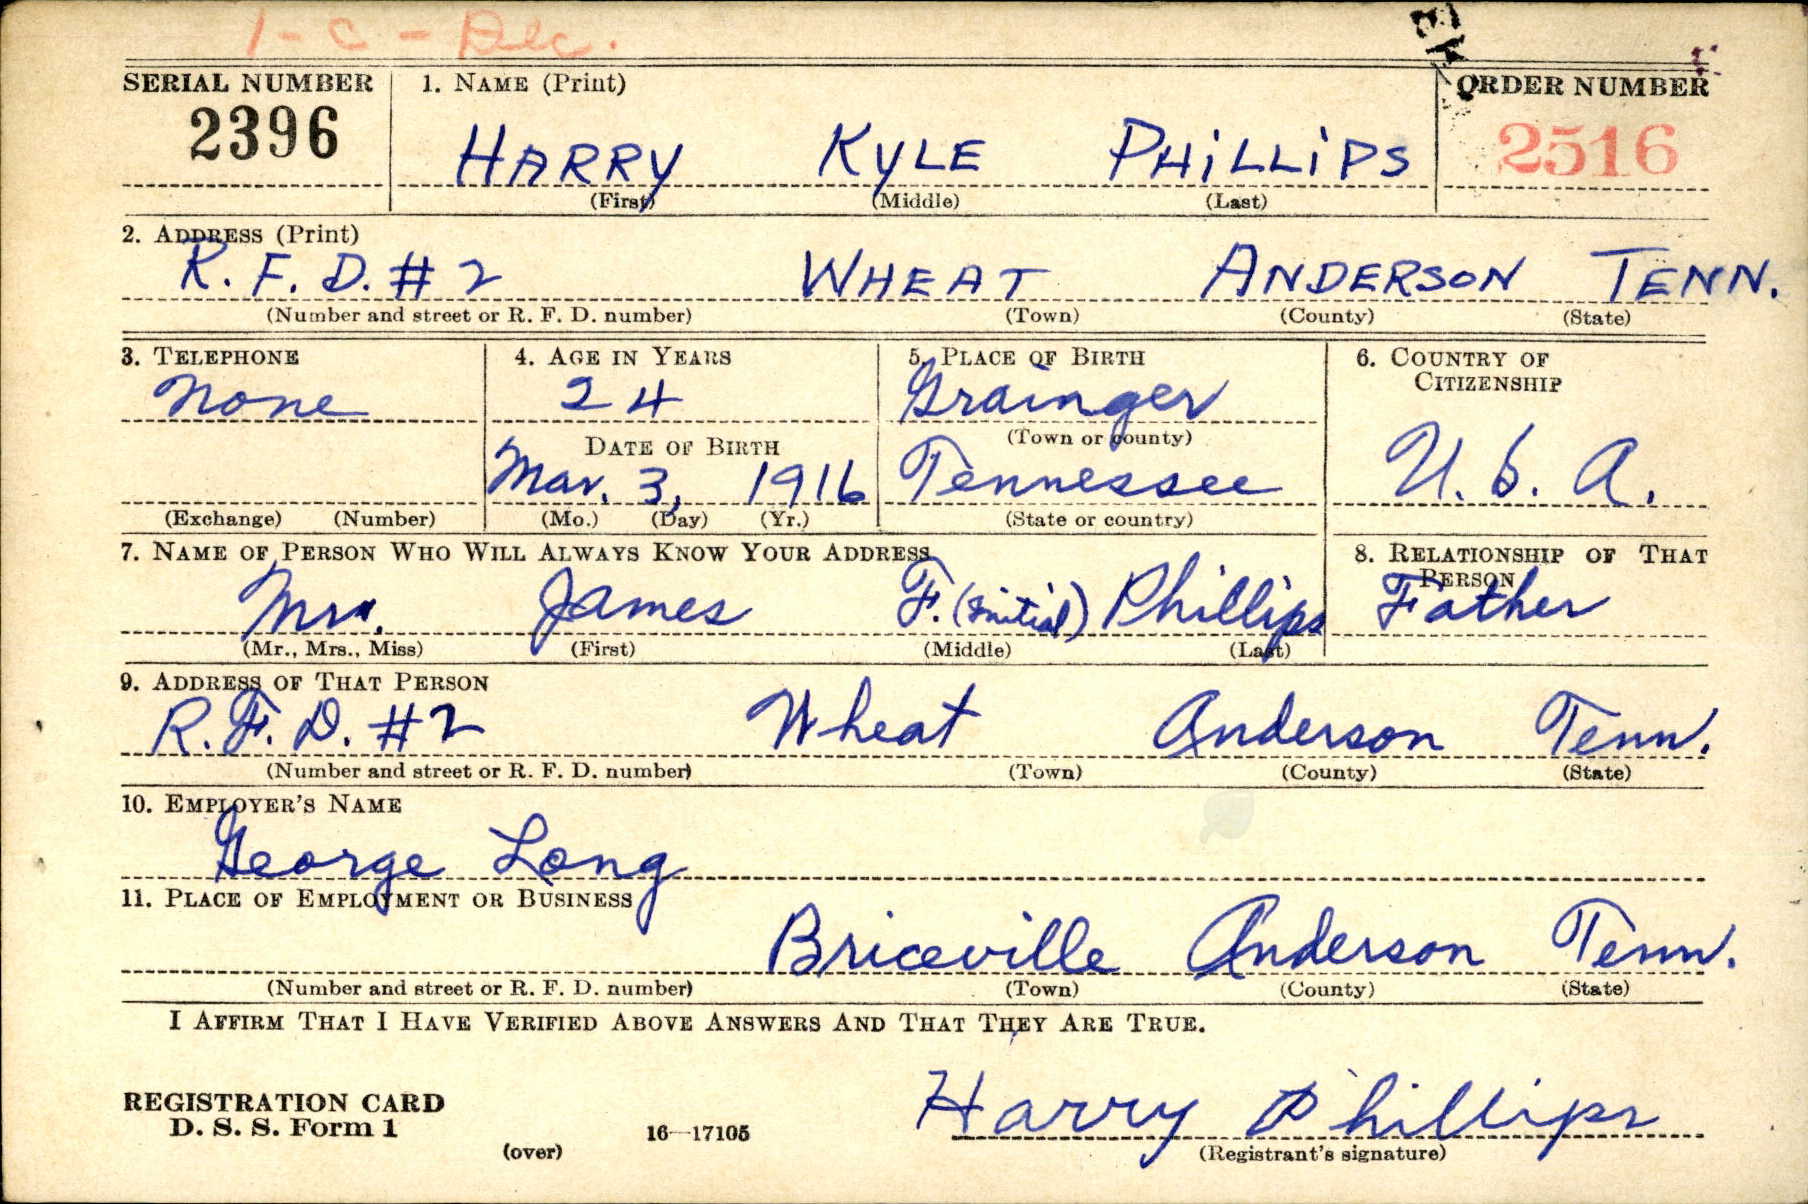 1-C-Dec.
SERIAL NUMBER 1. NAME (Print) ORDER NUMBER
2396 HARRY KYLE PHILLIPS 2516
(First) (Middle) (Last)
2. ADDRESS (Print)
R.F.D. #2 WHEAT ANDERSON TENN.
(Number and street or R. F. D. number) (Town) (County) (State)
3. TELEPHONE 4. AGE IN YEARS 5. PLACE OF BIRTH 6. COUNTRY OF
CITIZENSHIP
None 24 Grainger
DATE OF BIRTH (Town or county)
Mar. 3, 1916 Tennessee U.S.A.
(Exchange) (Number) (Mo.) (Day) (Yr.) (State or country)
7. NAME OF PERSON WHO WILL ALWAYS KNOW YOUR ADDRESS 8. RELATIONSHIP OF THAT
PERSON
James F. (initial) Phillips Father
(Mr., Mrs., Miss) (First) (Middle) (Last)
9. ADDRESS OF THAT PERSON
R.F.D. #2 Wheat Anderson Tenn.
(Number and street or R. F. D. number) (Town) (County) (State)
10. EMPLOYER'S NAME
George Long
11. PLACE OF EMPLOYMENT OR BUSINESS
Briceville Anderson Tenn.
(Number and street or R. F. D. number) (Town) (County) (State)
I AFFIRM THAT I HAVE VERIFIED ABOVE ANSWERS AND THAT THEY ARE TRUE.
Harry Phillips
REGISTRATION CARD
D. S. S. Form 1 16—17105
(over) (Registrant's signature)